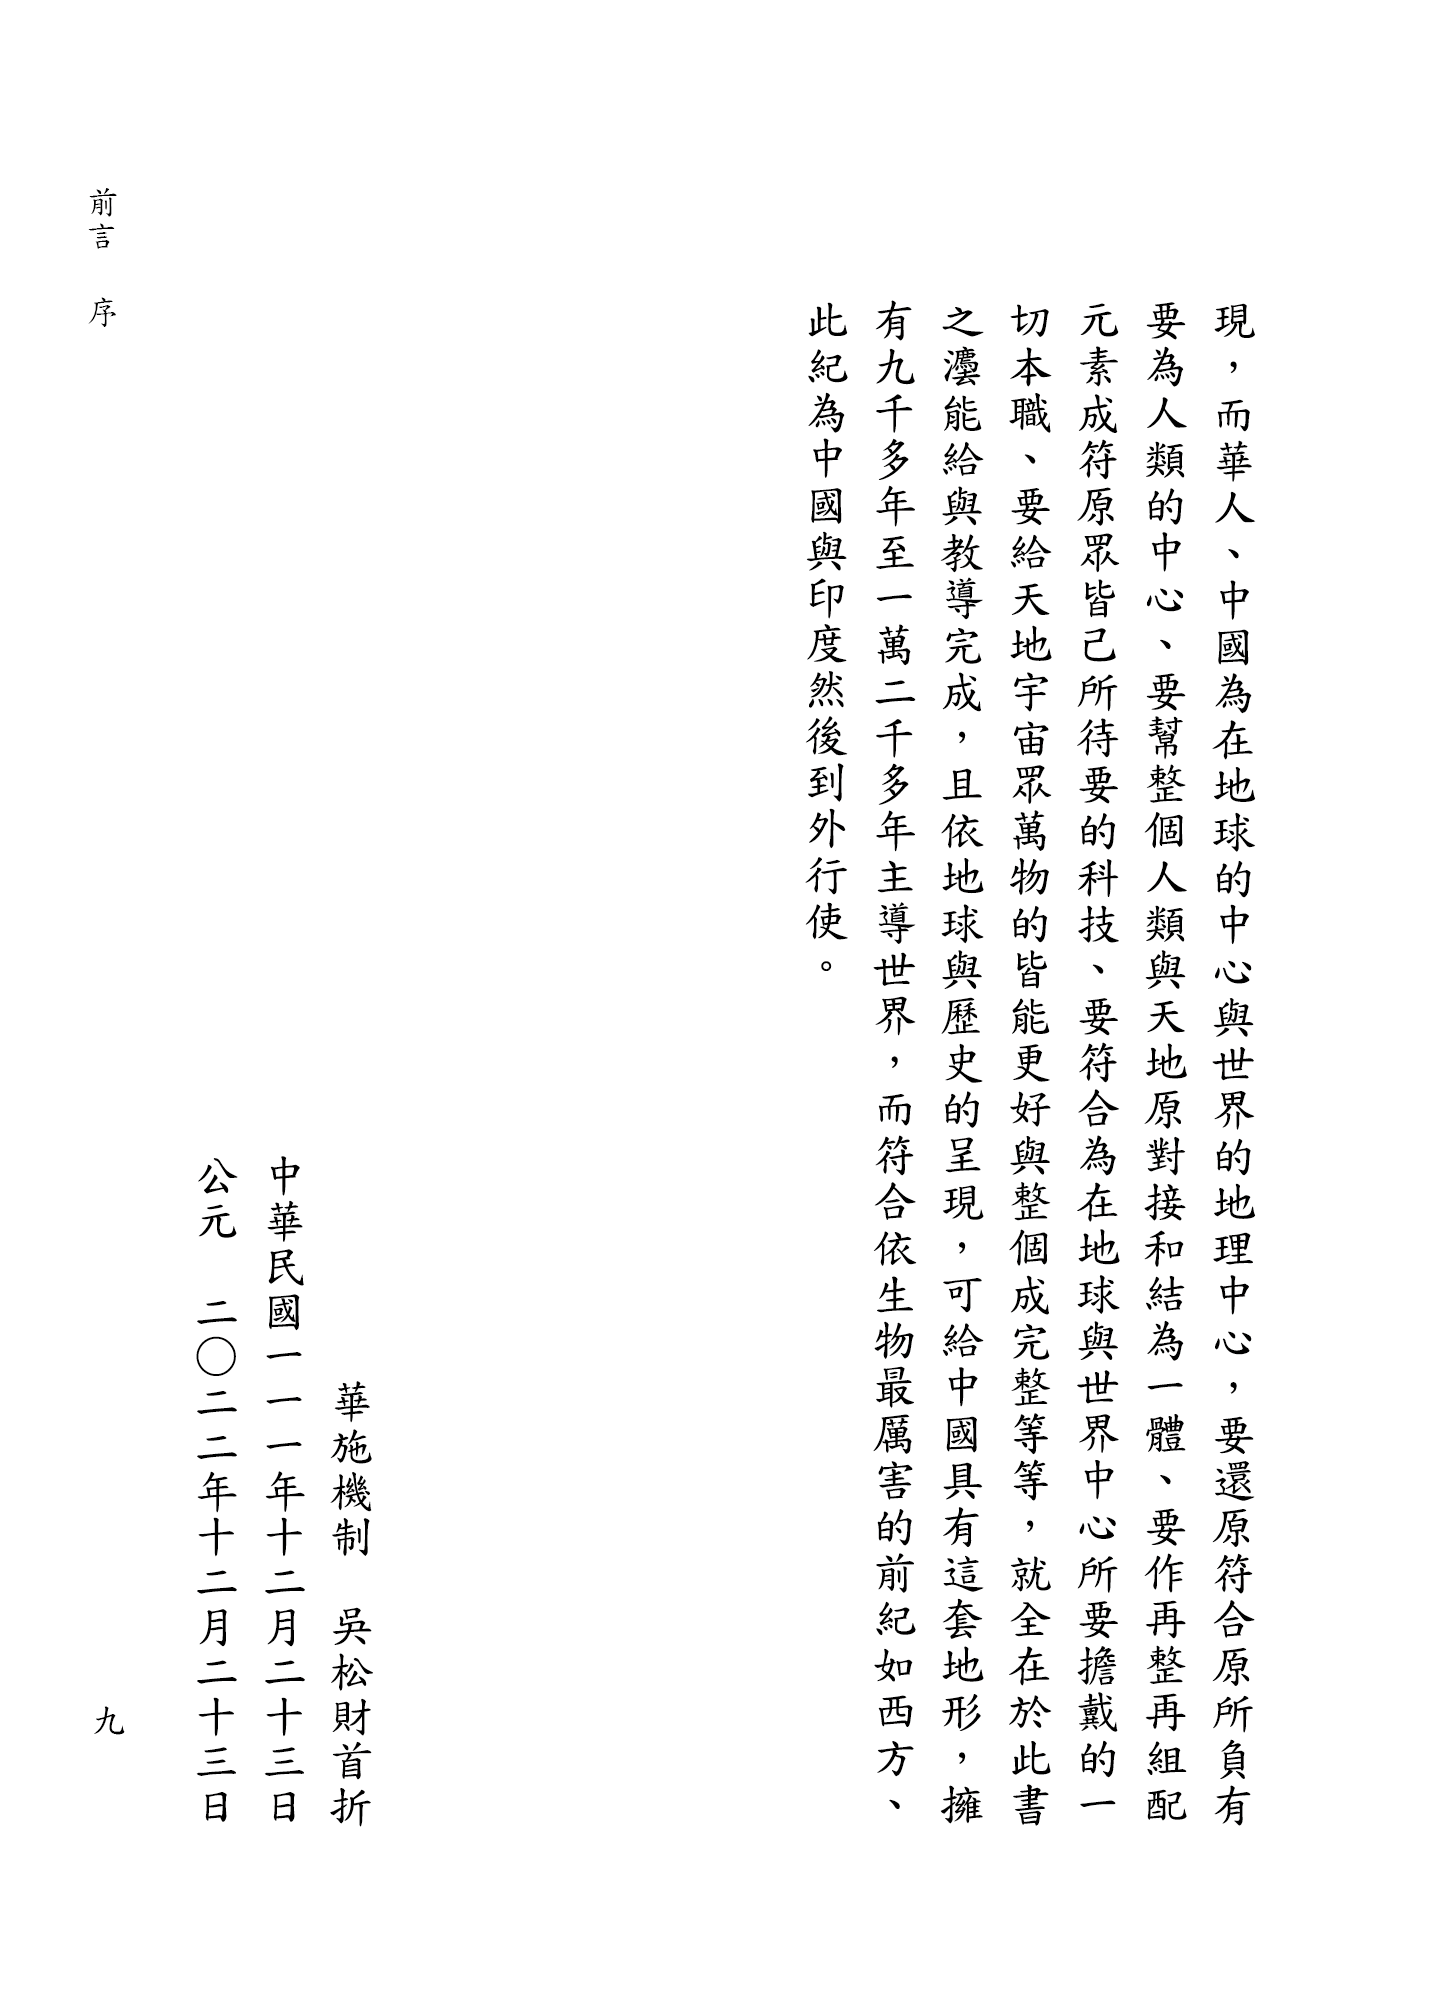 現，而華人、中國為在地球的中心與世界的地理中心，要還原符合原所負有
要為人類的中心、要幫整個人類與天地原對接和結為一體、要作再整再組配
元素成符原眾皆己所待要的科技、要符合為在地球與世界中心所要擔戴的一
切本職、要給天地宇宙眾萬物的皆能更好與整個成完整等等，就全在於此書
之灋能給與教導完成，且依地球與歷史的呈現，可給中國具有這套地形，擁
有九千多年至一萬二千多年主導世界，而符合依生物最厲害的前紀如西方、
此紀為中國與印度然後到外行使。
華施機制　吳松財首折
中華民國一一一年十二月二十三日
公元　二〇二二年十二月二十三日
前言　序
九